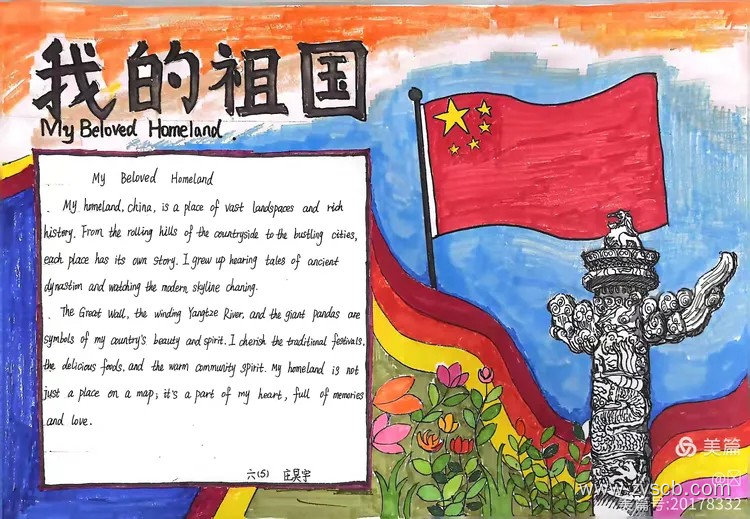 我的祖国
My Beloved Homeland.
My Beloved Homeland
My homeland, china, is a place of vast landspaces and rich
history. From the rolling hills of the countryside to the bustling cities,
each place has its own story. I grew up hearing tales of ancient
dynastion and watching the modern skyline chaning.
The Great Wall, the winding Yangtze River, and the giant pandas are
symbols of my country's beauty and spirit. I cherish the traditional festivals,
the delicious foods, and the warm community spirit. My homeland is not
just a place on a map; it's a part of my heart, full of memories
and love.
六(5) 庄昊宇
美篇
www.zyscb.com
美篇号:20178332